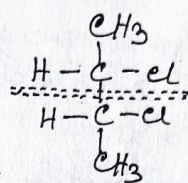 CH3
H - C - Cl
H - C - Cl
CH3